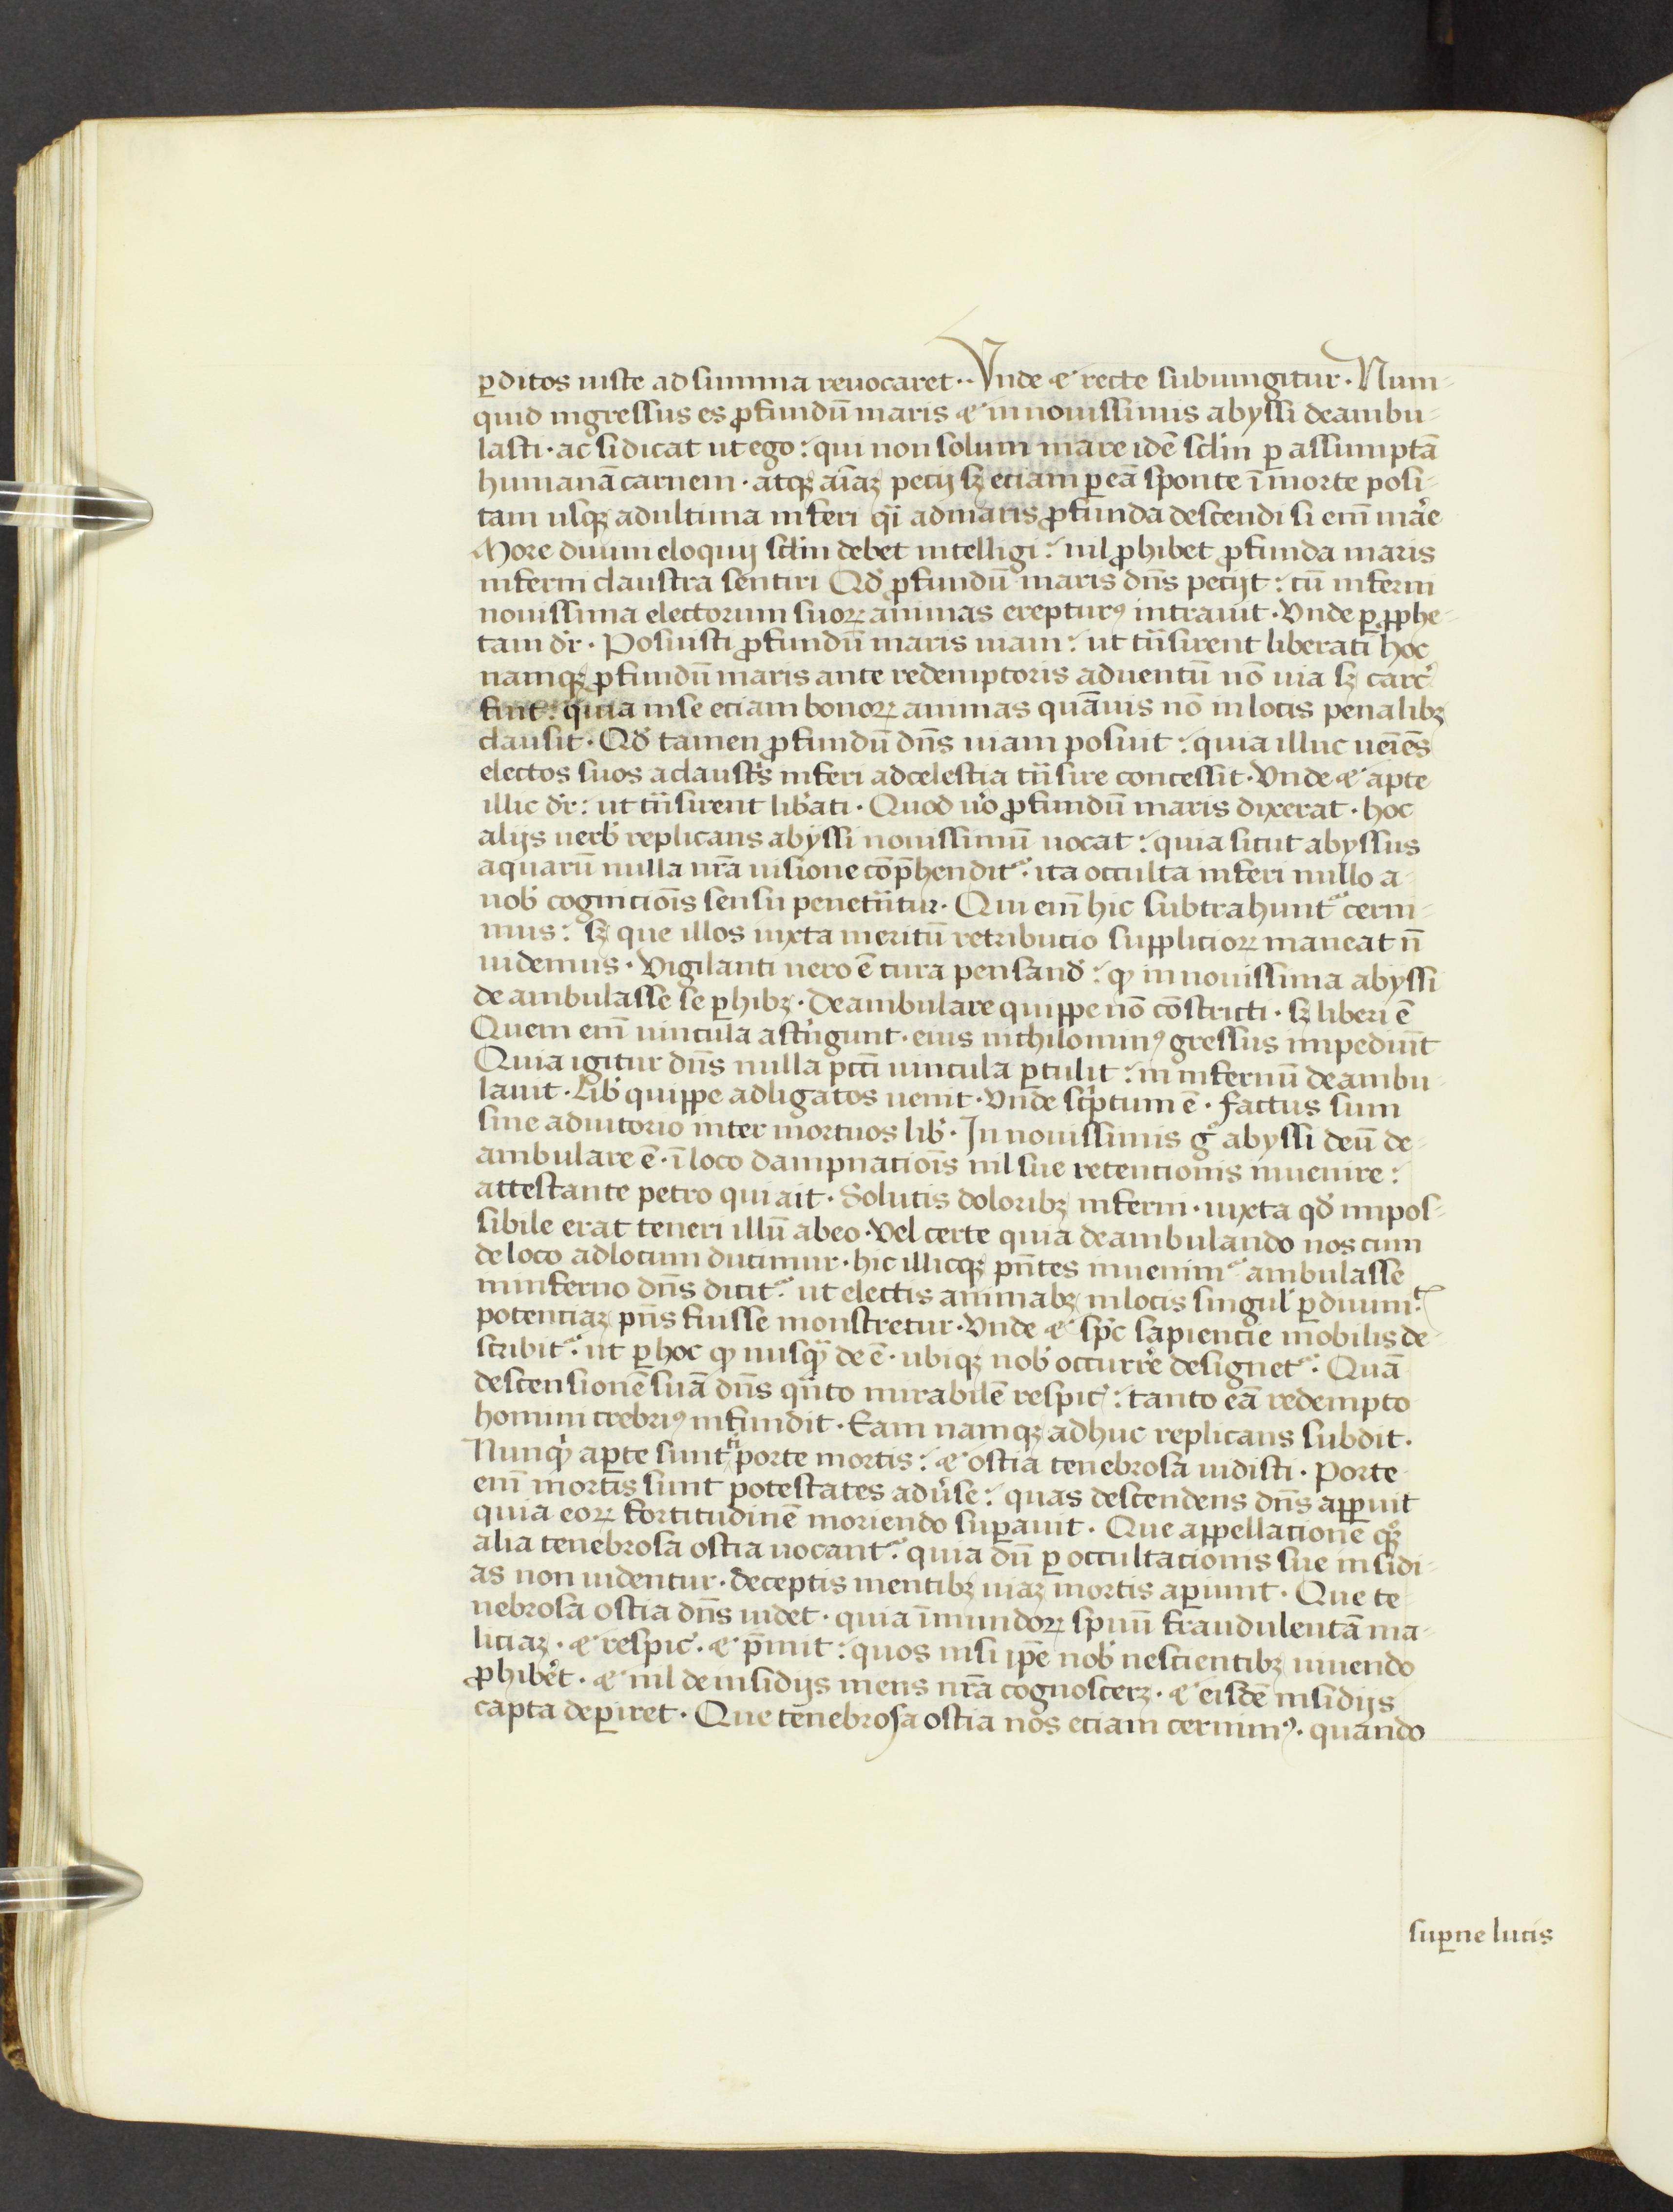 ꝑditos iuste ad summa reuocaret · Vnde ⁊ recte subiungitur · Num-
quid ingressus es ꝓfundū maris ⁊ in nouissimis abyssi deambu-
lasti · ac si dicat ut ego : qui non solum mare idē sclm̄ ꝑ assumptā
humanā carnem · atqꝫ aīaꝫ pecij sꝫ eciam ꝑ eā sponte ī morte posi-
tam usqꝫ ad ultima inferi q̈i ad maris ꝓfunda descendi si em̄ mar̉e
More diuini eloquij sclm̄ debet intelligi : nil ꝓhibet ꝓfunda maris
inferni claustra sentiri Qd̛ ꝓfundū maris dn̄s pecijt : cū inferni
nouissima electorum suoꝝ animas erepturꝰ intrauit · Vnde ꝑ ꝓphe-
tam dr̄ · Posuisti ꝓfundū maris uiam : ut tn̈sirent liberati hoc
namqꝫ ꝓfundū maris ante redemptoris aduentū nō uia sꝫ carc̉
fuit : quia in se eciam bonoꝝ animas quāuis nō in locis penalibꝫ
clausit · Qd̛ tamen ꝓfundū dn̄s uiam posuit : quia illuc ueīes
electos suos a claust̉s inferi ad celestia tn̈sire concessit · Vnde ⁊ apte
illic dr̄ : ut tn̈sirent lib̉ati · Quod ủo ꝓfundū maris dixerat · hoc
alijs uerb̛ replicans abyssi nouissimū uocat : quia sicut abyssus
aquarū nulla nr̄a uisione cōp̄hendit᷑ · ita occulta inferi nullo a
nob̛ cognicioīs sensu penetn̈tur · Qui em̄ hic subtrahunt᷑ cerni-
mus : sꝫ que illos iuxta meritū retribucio supplicioꝝ maneat n̄
uidemus · Vigilanti uero ē cura pensand̛ : ꝙ in nouissima abyssi
deambulasse se ꝑhibꝫ · Deambulare quippe nō cōstricti · sꝫ liberi ē
Quem em̄ uincula astr̉ngunt · eius nichilominꝰ gressus impediūt
Quia igitur dn̄s nulla pcc̄i uincula ꝑtulit : in infernū deambu-
lauit · Lib̛ quippe ad ligatos uenit · Vnde sc̉ptum ē · factus sum
sine adiutorio inter mortuos lib̛ · In nouissimis gͦ abyssi deū de-
ambulare ē · ī loco dampnacioīs nil sue retencionis inuenire :
attestante petro qui ait · Solutis doloribꝫ inferni · iuxta qd̛ impos-
sibile erat teneri illū ab eo · Vel certe quia deambulando nos cum
de loco ad locum ducimur · hic illicqꝫ pn̄tes inuenim᷑ ambulasse
in inferno dn̄s dicit᷑ · ut electis animabꝫ in locis singul̛ ꝑ diuini t
potenciaꝫ pn̄s fuisse monstretur · Vnde ⁊ sp̄c sapiencie mobilis de-
scribit᷑ · ut ꝑ hoc ꝙ nusq̈ de ē · ubiqꝫ nob̛ occurr̉e designet᷑ · Quā
descensionē suā dn̄s qn̈to mirabilē respic̉ : tanto eā redempto
homini crebriꝰ infundit · Eam namqꝫ adhuc replicans subdit ·
Nunq̈ aꝑte sunt ti porte mortis : ⁊ ostia tenebrosa uidisti · Porte
em̄ mortis sunt potestates adủse : quas descendens dn̄s aꝑuit
quia eoꝝ fortitudinē moriendo suꝑauit · Que appellacione qͦꝫ
alia tenebrosa ostia uocant᷑ quia dū ꝑ occultacionis sue insidi-
as non uidentur · deceptis mentibꝫ uiaꝫ mortis aꝑiunt · Que te-
nebrosa ostia dn̄s uidet · quia īmundoꝝ spūū fraudulentā ma-
liciaꝫ · ⁊ respic̉ · ⁊ p̄mit : quos nisi ip̄e nob̛ nescientibꝫ uiuendo
ꝓhib̉et · ⁊ nil de insidijs mens nr̄a cognoscerꝫ · ⁊ eisdē insidijs
capta deꝑiret · Que tenebrosa ostia nos eciam cernimꝰ · quando
suꝑne lucis